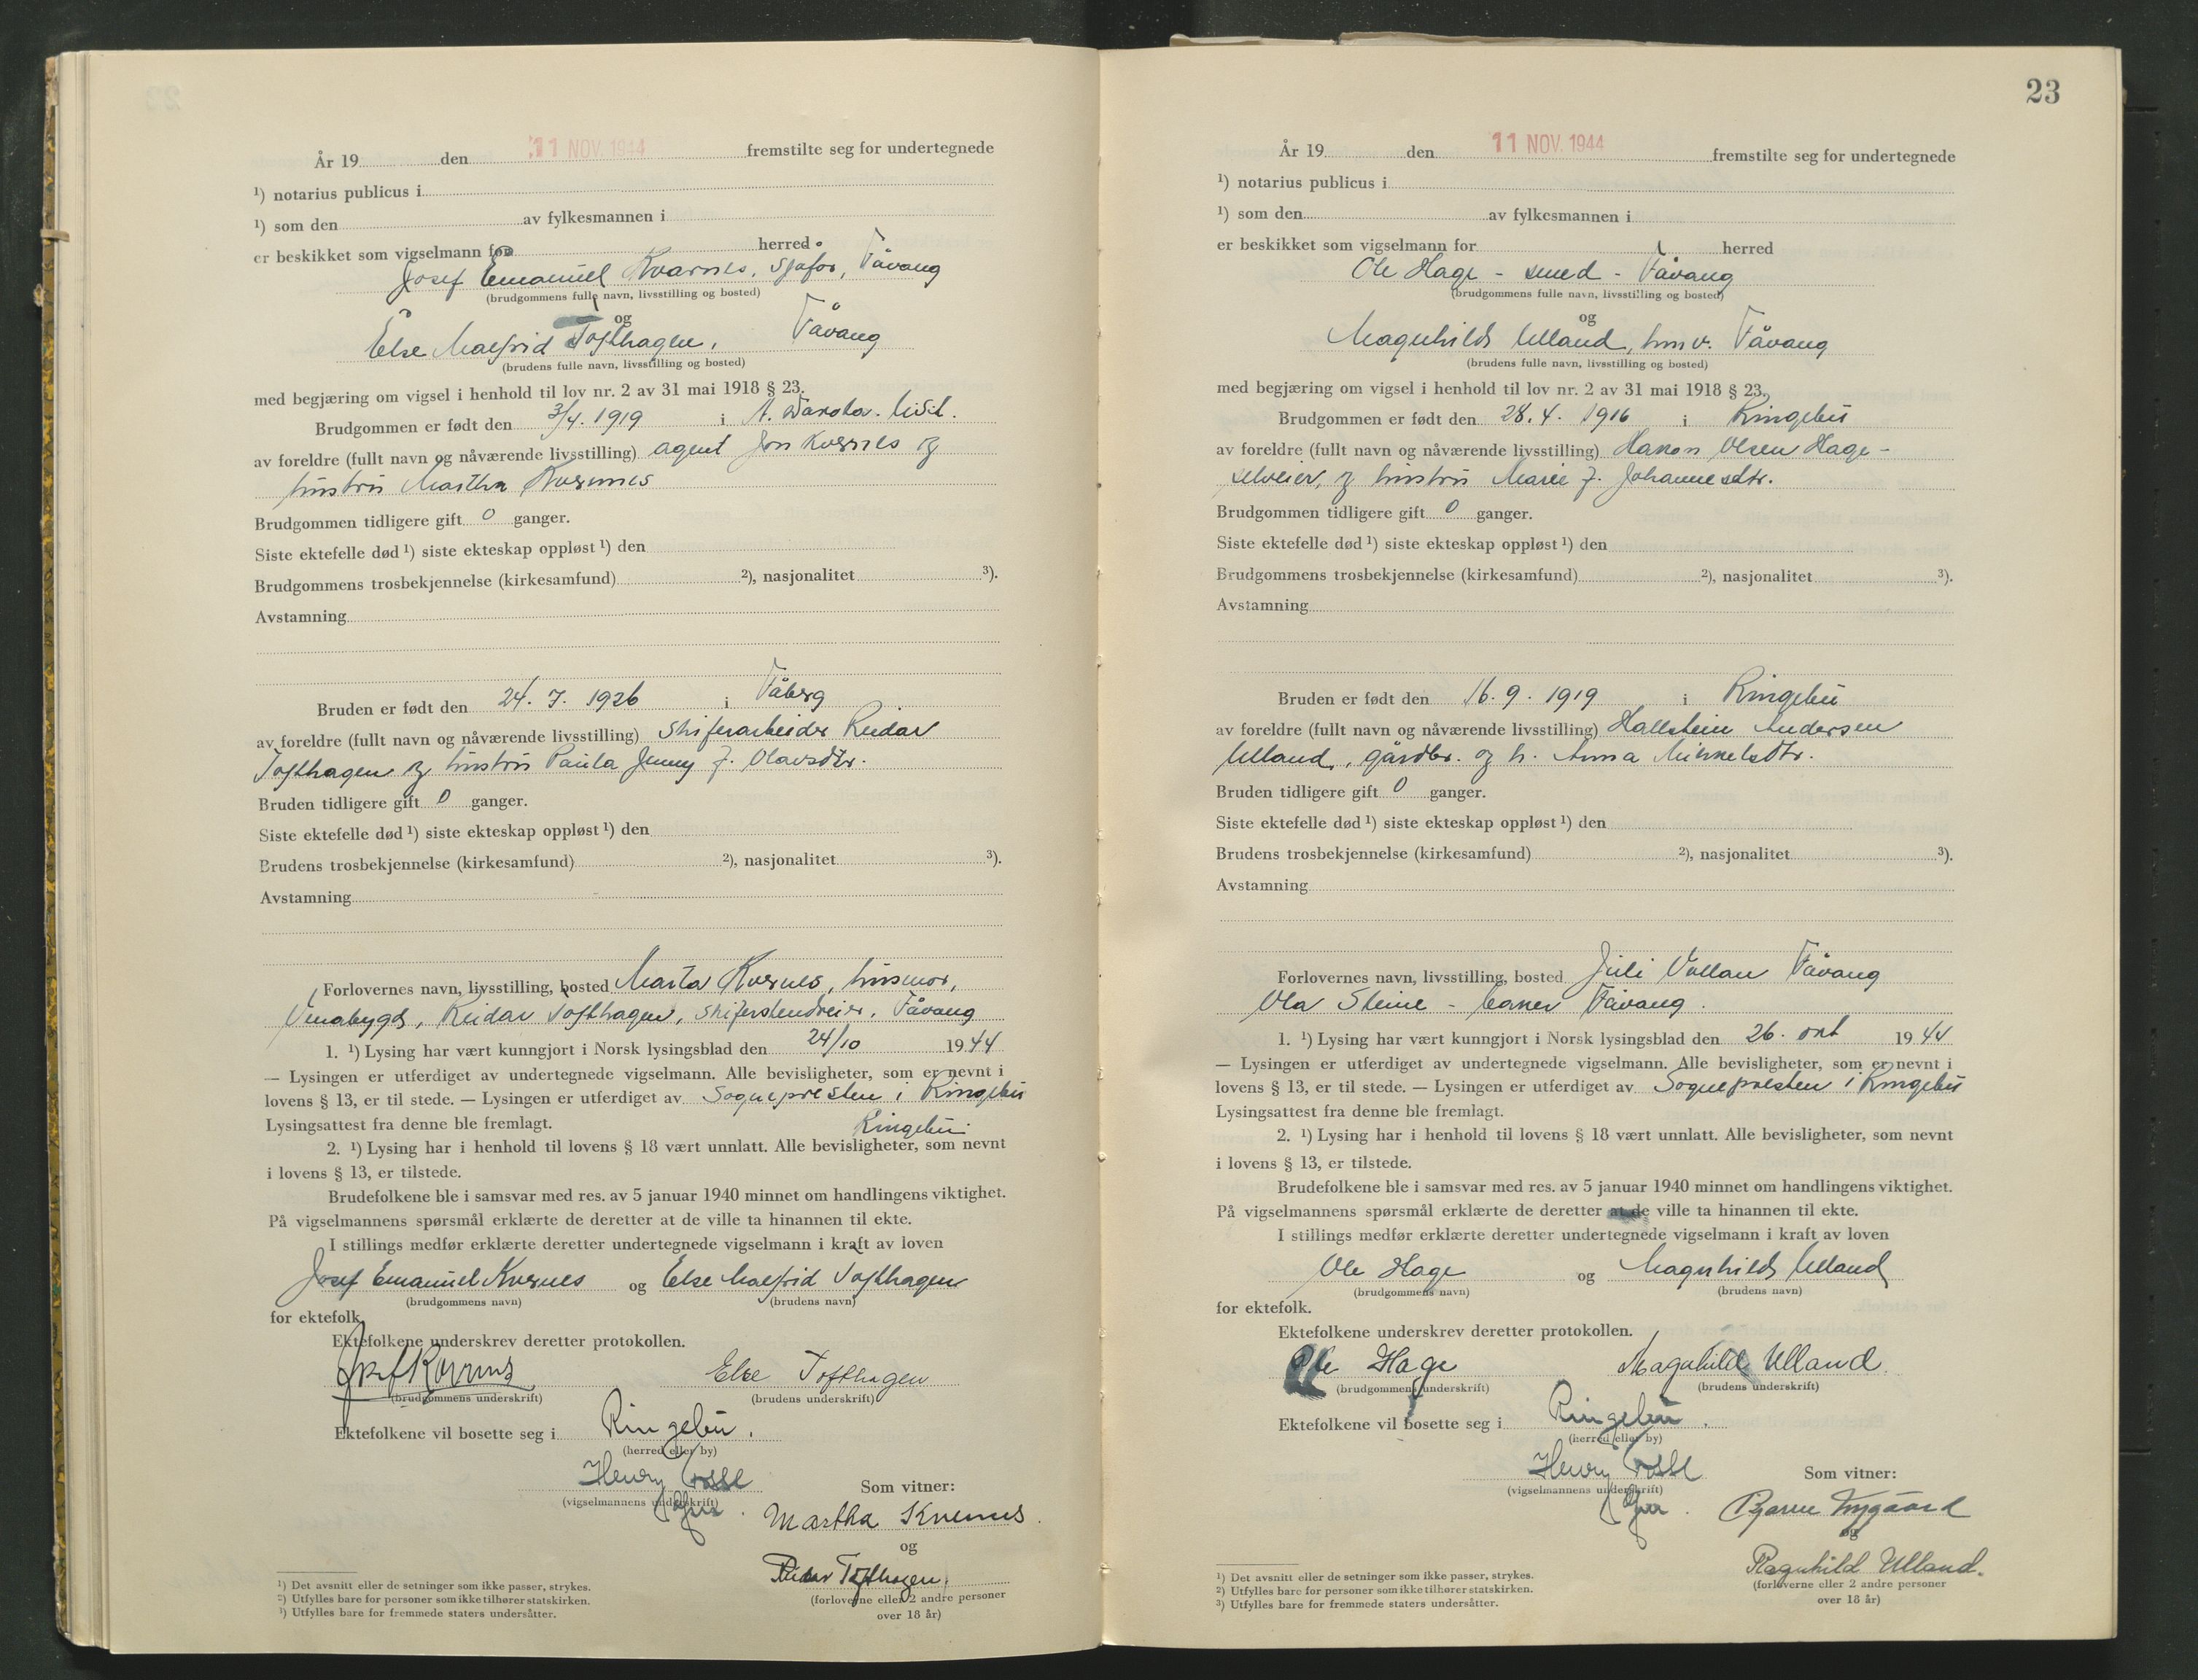 År 19 den 11 NOV. 1944 fremstilte seg for undertegnede
¹) notarius publicus i
¹) som den av fylkesmannen i
er beskikket som vigselmann for herred
Josef Emanuel Kvernes, sjåfør, Fåvang
(brudgommens fulle navn, livsstilling og bosted)
og
Else Malfrid Tofthagen, Fåvang
(brudens fulle navn, livsstilling og bosted)
med begjæring om vigsel i henhold til lov nr. 2 av 31 mai 1918 § 23.
Brudgommen er født den 3/4. 1919 i
av foreldre (fullt navn og nåværende livsstilling) agent Jon Kvernes og
hustru Martha Kvernes
Brudgommen tidligere gift 0 ganger.
Siste ektefelle død ¹) siste ekteskap oppløst ¹) den
Brudgommens trosbekjennelse (kirkesamfund) ²), nasjonalitet ³).
Avstamning
Bruden er født den 24. 7. 1926 i Fåberg
av foreldre (fullt navn og nåværende livsstilling) skiferarbeider Reidar
Tofthagen og hustru Paula Jenny f. Olavsdtr.
Bruden tidligere gift 0 ganger.
Siste ektefelle død ¹) siste ekteskap oppløst ¹) den
Brudens trosbekjennelse (kirkesamfund) ²), nasjonalitet ³).
Avstamning
Forlovernes navn, livsstilling, bosted Marta Kvernes, husmor,
Venabygd, Reidar Tofthagen, Fåvang
1. ¹) Lysing har vært kunngjort i Norsk lysingsblad den 24/10 1944
— Lysingen er utferdiget av undertegnede vigselmann. Alle bevisligheter, som er nevnt i
lovens § 13, er til stede. — Lysingen er utferdiget av Sognepresten i Ringebu
Lysingsattest fra denne ble fremlagt. Ringebu
2. ¹) Lysing har i henhold til lovens § 18 vært unnlatt. Alle bevisligheter, som nevnt
i lovens § 13, er tilstede.
Brudefolkene ble i samsvar med res. av 5 januar 1940 minnet om handlingens viktighet.
På vigselmannens spørsmål erklærte de deretter at de ville ta hinannen til ekte.
I stillings medfør erklærte deretter undertegnede vigselmann i kraft av loven
Josef Emanuel Kvernes og Else Malfrid Tofthagen
(brudgommens navn) (brudens navn)
for ektefolk.
Ektefolkene underskrev deretter protokollen.
Josef Kvernes Else Tofthagen
(brudgommens underskrift) (brudens underskrift)
Ektefolkene vil bosette seg i Ringebu.
(herred eller by)
Henry
(vigselmannens underskrift) Som vitner:
Martha Kvernes.
og
Reidar Tofthagen.
(forloverne eller 2 andre personer
over 18 år)
¹) Det avsnitt eller de setninger som ikke passer, strykes.
²) Utfylles bare for personer som ikke tilhører statskirken.
³) Utfylles bare for fremmede staters undersåtter.
23
År 19 den 11 NOV. 1944 fremstilte seg for undertegnede
¹) notarius publicus i
¹) som den av fylkesmannen i
er beskikket som vigselmann for herred
Ole Hage - smed - Fåvang
(brudgommens fulle navn, livsstilling og bosted)
og
Magnhild Ulland, Fåvang
(brudens fulle navn, livsstilling og bosted)
med begjæring om vigsel i henhold til lov nr. 2 av 31 mai 1918 § 23.
Brudgommen er født den 28. 4. 1916 i Ringebu
av foreldre (fullt navn og nåværende livsstilling) Hakon Olsen Hage -
selveier, og hustru Marie f. Johannesdtr.
Brudgommen tidligere gift 0 ganger.
Siste ektefelle død ¹) siste ekteskap oppløst ¹) den
Brudgommens trosbekjennelse (kirkesamfund) ²), nasjonalitet ³).
Avstamning
Bruden er født den 16. 9. 1919 i Ringebu
av foreldre (fullt navn og nåværende livsstilling) Hallstein Andersen
Ulland, gårdbr. og h. Anna Mikkelsdtr.
Bruden tidligere gift 0 ganger.
Siste ektefelle død ¹) siste ekteskap oppløst ¹) den
Brudens trosbekjennelse (kirkesamfund) ²), nasjonalitet ³).
Avstamning
Forlovernes navn, livsstilling, bosted Juli Vollan Fåvang
Ola Steine - Fåvang.
1. ¹) Lysing har vært kunngjort i Norsk lysingsblad den 26. okt 1944
— Lysingen er utferdiget av undertegnede vigselmann. Alle bevisligheter, som er nevnt i
lovens § 13, er til stede. — Lysingen er utferdiget av Sognepresten i Ringebu
Lysingsattest fra denne ble fremlagt.
2. ¹) Lysing har i henhold til lovens § 18 vært unnlatt. Alle bevisligheter, som nevnt
i lovens § 13, er tilstede.
Brudefolkene ble i samsvar med res. av 5 januar 1940 minnet om handlingens viktighet.
På vigselmannens spørsmål erklærte de deretter at de ville ta hinannen til ekte.
I stillings medfør erklærte deretter undertegnede vigselmann i kraft av loven
Ole Hage og Magnhild Ulland
(brudgommens navn) (brudens navn)
for ektefolk.
Ektefolkene underskrev deretter protokollen.
Ole Hage Magnhild Ulland.
(brudgommens underskrift) (brudens underskrift)
Ektefolkene vil bosette seg i Ringebu.
(herred eller by)
Henry
(vigselmannens underskrift) Som vitner:
Bjarne Nygaard
og
Ragnhild Ulland.
(forloverne eller 2 andre personer
over 18 år)
¹) Det avsnitt eller de setninger som ikke passer, strykes.
²) Utfylles bare for personer som ikke tilhører statskirken.
³) Utfylles bare for fremmede staters undersåtter.